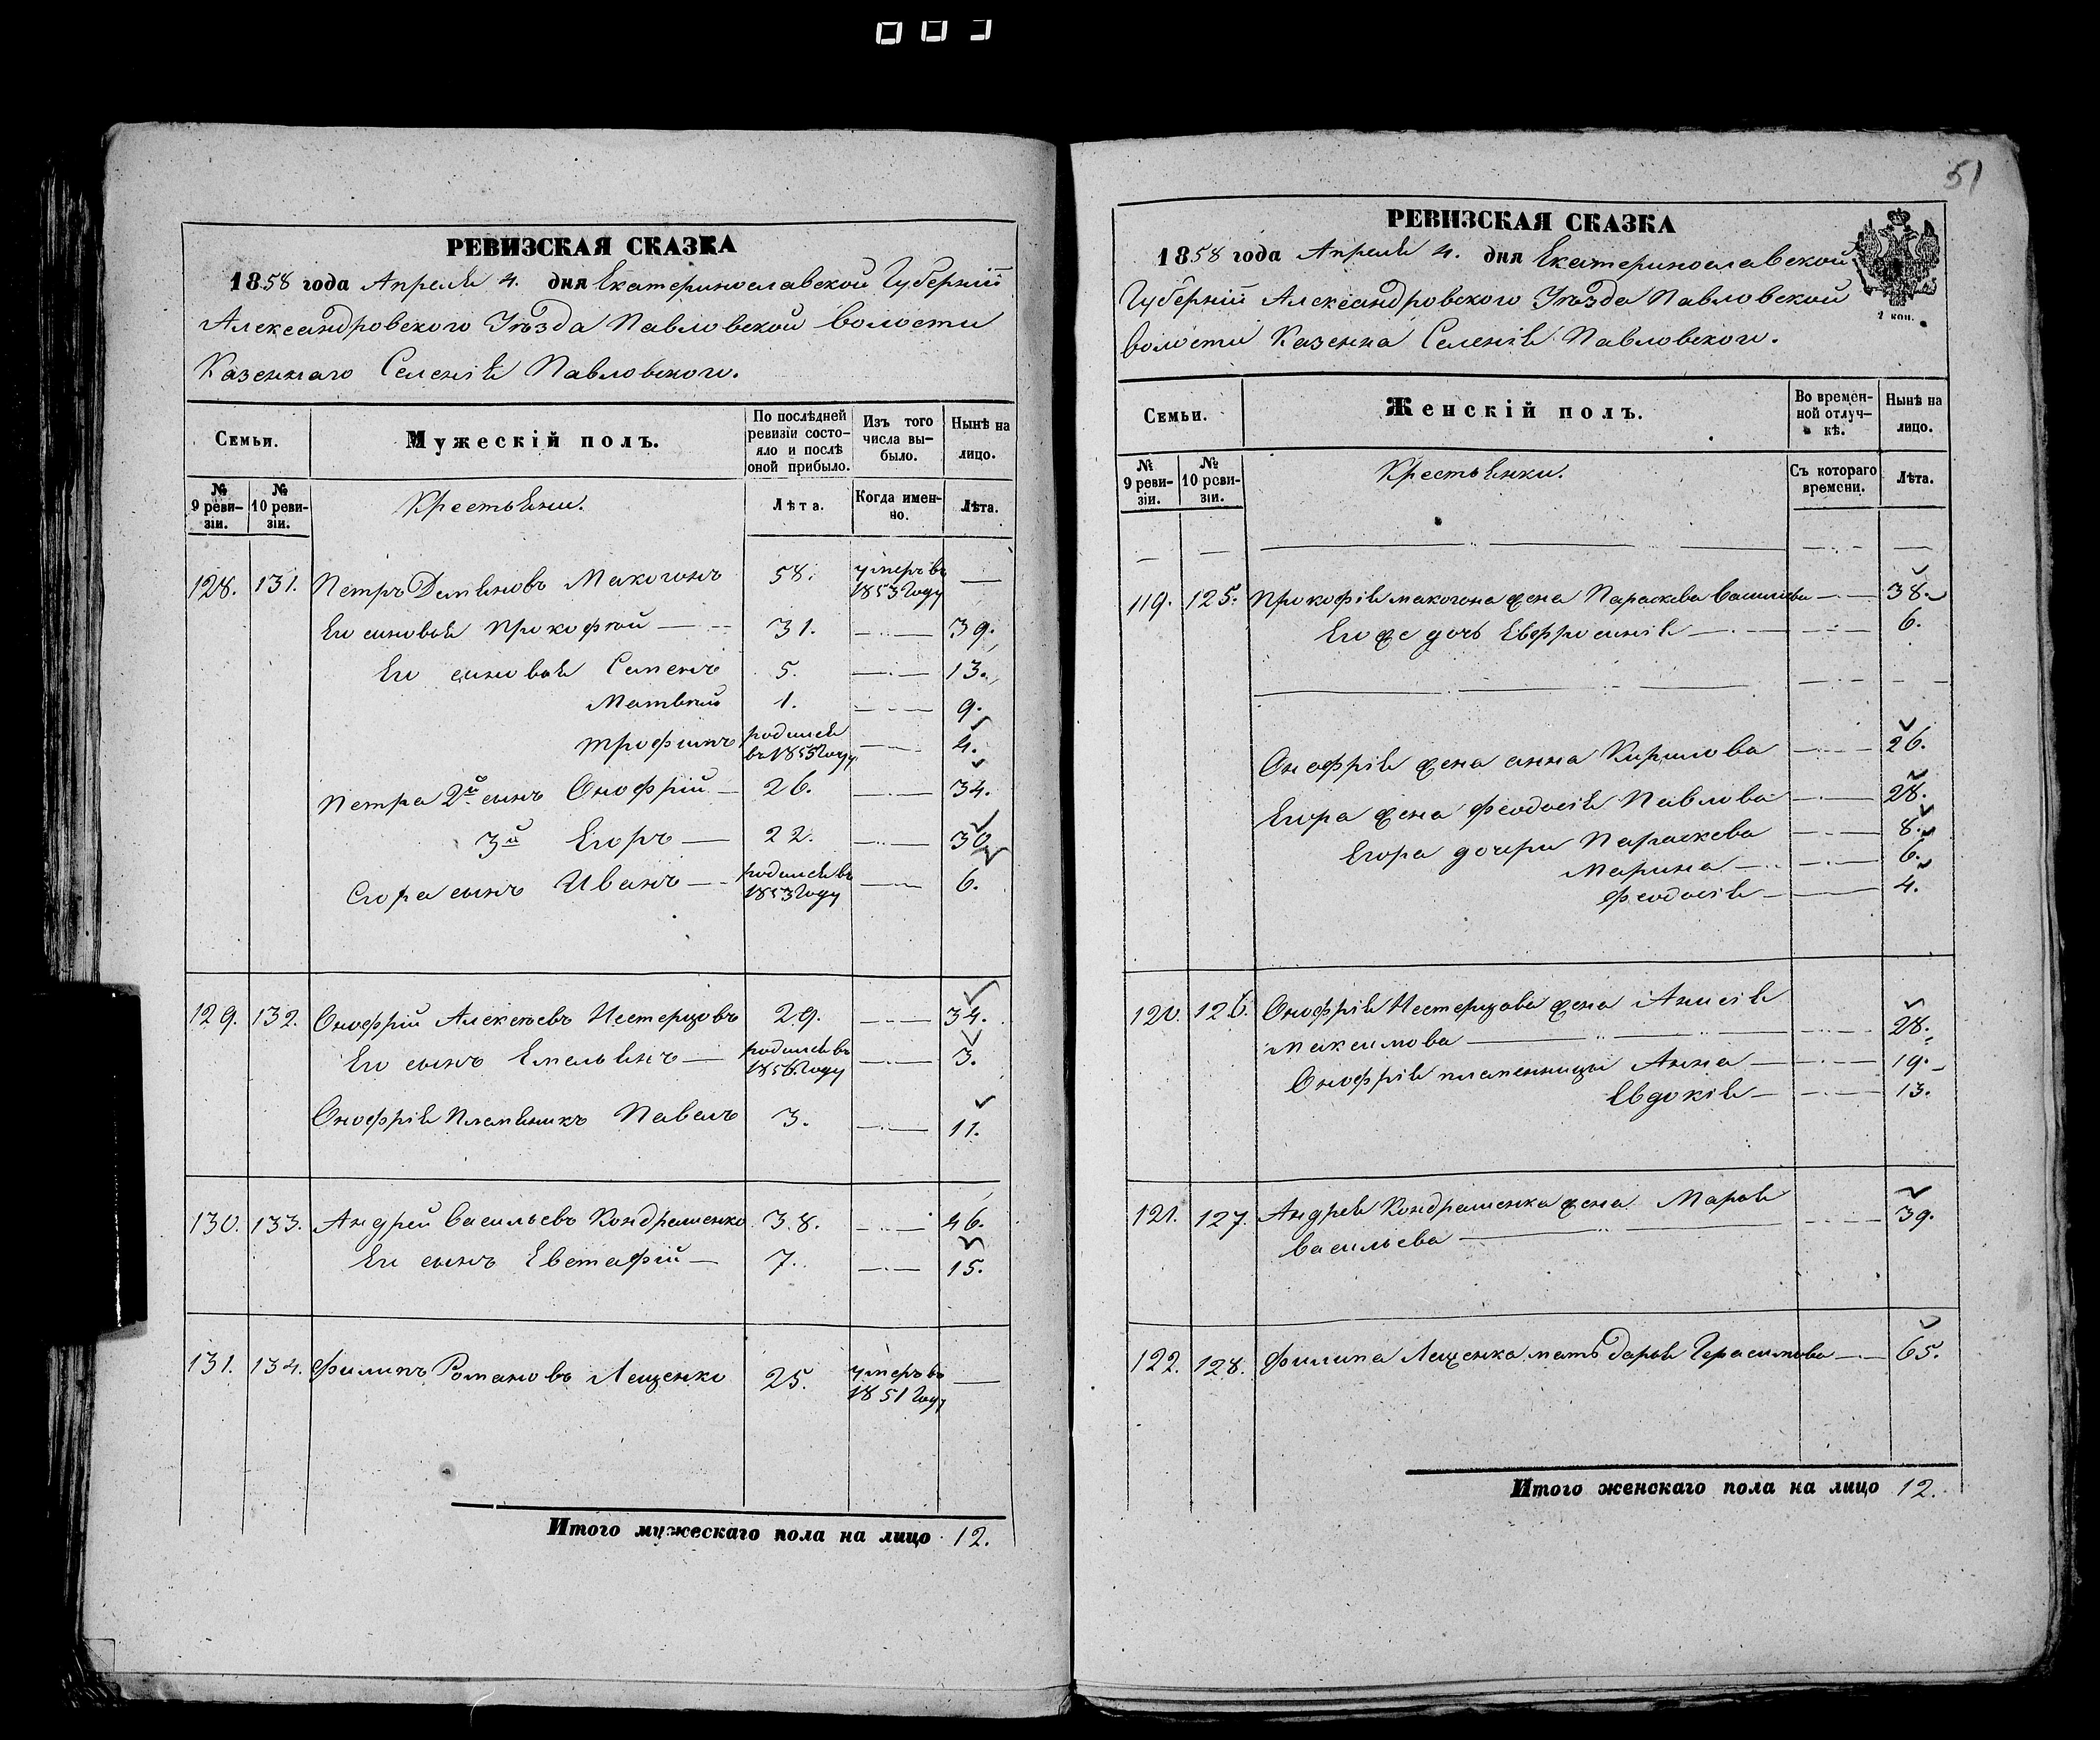 003
РЕВИЗСКАЯ СКАЗКА
1858 года Апреля 4. дня Екатеринославской Губернiи
Александровского Уѣзда Павловской волости
Казеннаго Селенiя Павловского.
Семьи.
Мужескiй полъ.
По послѣдней ревизiи состояло и послѣ оной прибыло.
Изъ того числа выбыло.
Нынѣ на лицо.
№ 9 ревизiи.
№ 10 ревизiи.
Крестьяни.
Лѣта.
Когда именно.
Лѣта.
128. 131. Петръ Демяновъ Макогонъ 58. умеръ въ 1853 году —
Его сыновья Прокофѣй 31. — 39.
Его сыновья Семенъ 5. — 13.
Матвѣй 1. — 9.
Трофимъ родился въ 1855 году — 4.
Петра 2й сынъ Онофрiй — 26. — 34.
3й Егоръ — 22. — 30
Егора сынъ Иванъ — родился въ 1853 году — 6.
129. 132. Онофрiй Алексѣевъ Нестерцовъ 29. — 34.
Его сынъ Емельянъ — родился въ 1856 году — 3.
Онофрiя Племяникъ Павелъ 3. — 11.
130. 133. Андрей Васильевъ Кондрашенко 38. — 46.
Его сынъ Евстафiй — 7. — 15.
131. 134. Филипъ Романовъ Лещенко 25. умеръ въ 1851 году —
Итого мужескаго пола на лицо 12.
51
РЕВИЗСКАЯ СКАЗКА
1858 года Апреля 4. дня Екатеринославской
Губернiи Александровского Уѣзда Павловской
волости Казенна Селенiя Павловского.
2 коп.
Семьи.
Женскiй полъ.
Во временной отлучкѣ.
Нынѣ на лицо.
№ 9 ревизiи.
№ 10 ревизiи.
Крестьянки.
Съ котораго времени.
Лѣта.
119. 125. Прокофiя макогона жена Параскева Васильева — 38.
Его же дочь Евфросинiя — 6.
Онофрiя жена анна Кирилова — 26.
Егора жена Феодосiя Павлова — 28.
Егора дочери Параскева — 8.
Марина — 6.
Феодосiя — 4.
120. 126. Онофрiя Нестерцова жена Анисiя
Максимова — 28.
Онофрiя племенницы Анна — 19.
Евдокiя — 13.
121. 127. Андрея Кондрашенка жена Марья
Васильева — 39.
122. 128. Филипа Лещенка мать Дарья Герасимова — 65.
Итого женскаго пола на лицо 12.